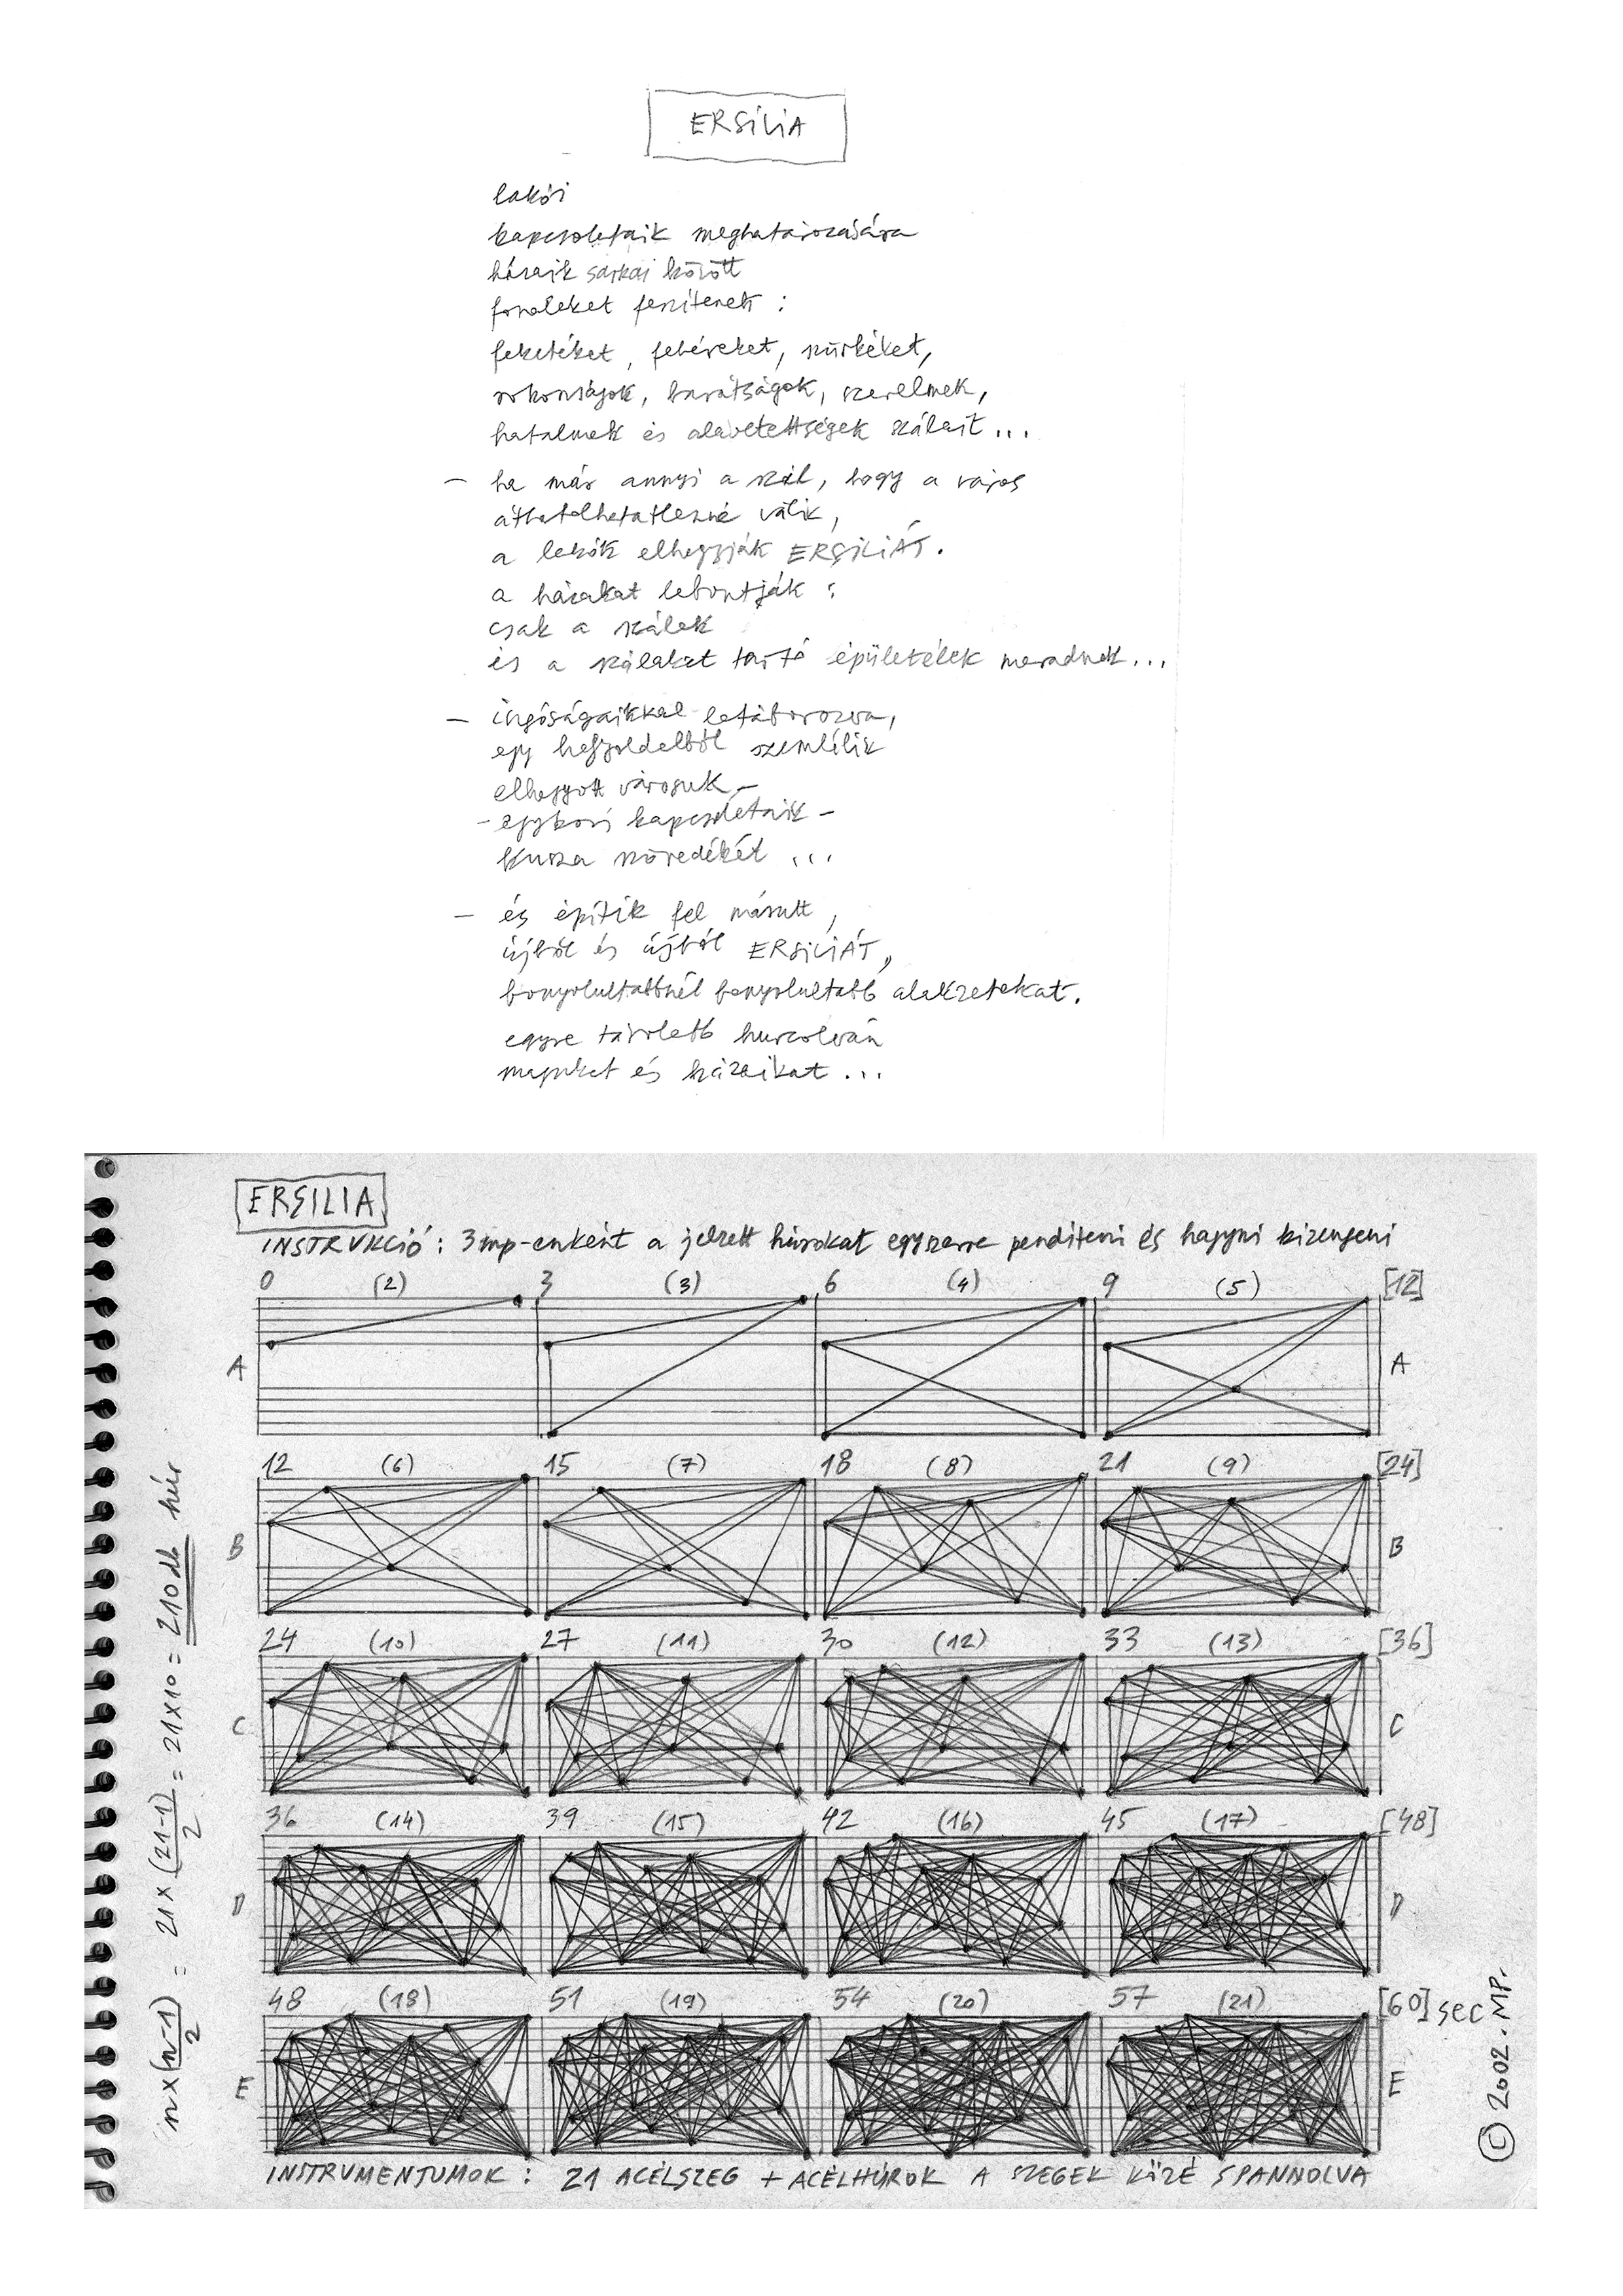 ERSILIA
lakói
kapcsolataik meghatározására
házaik sarkai között
fonalakat feszítenek :
feketéket, fehéreket, szürkéket,
rokonságok, barátságok, szerelmek,
hatalmak és alávetettségek szálait ...
– ha már annyi a szál, hogy a város
áthatolhatatlanná válik,
a lakók elhagyják ERSILIÁT.
a házakat lebontják :
csak a szálak
és a szálakat tartó épületélek maradnak ...
– ingóságaikkal letáborozva,
egy hegyoldalból szemlélik
elhagyott városuk –
– egykori kapcsolataik –
kusza szövedékét ...
– és építik fel másutt,
újból és újból ERSILIÁT,
bonyolultabbnál bonyolultabb alakzatokat.
egyre távolabb hurcolván
magukat és házaikat ...
ERSILIA
INSTRUKCIÓ : 3mp-enként a jelzett húrokat egyszerre pendíteni és hagyni kizengeni
0 (2) 3 (3) 6 (4) 9 (5) [12]
A A
12 (6) 15 (7) 18 (8) 21 (9) [24]
B B
24 (10) 27 (11) 30 (12) 33 (13) [36]
C C
36 (14) 39 (15) 42 (16) 45 (17) [48]
D D
48 (18) 51 (19) 54 (20) 57 (21) [60] sec
E E
INSTRUMENTUMOK : 21 ACÉLSZEG + ACÉLHÚROK A SZEGEK KÖZÉ SPANNOLVA
n×(n-1)/2 = 21×(21-1)/2 = 21×10 = 210 db húr
© 2002. MP.